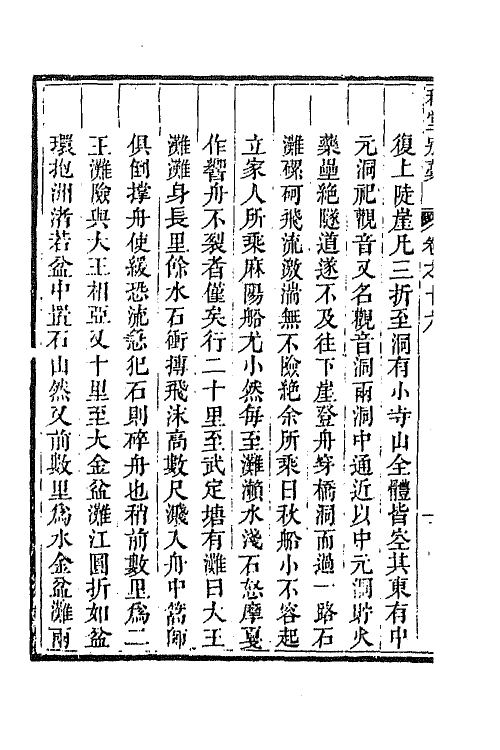 卷之十六
復上陡崖凡三折至洞有小寺山全體皆空其東有中
元洞祀觀音又名觀音洞兩洞中通近以中元洞貯火
藥壘絕隧道遂不及往下崖登舟穿橋洞而過一路石
灘磥砢飛流激湍無不險絕余所乘日秋船小不容起
立家人所乘麻陽船尤小然每至灘瀨水淺石怒摩戛
作響舟不裂者僅矣行二十里至武定塘有灘曰大王
灘灘身長里餘水石衝搏飛沫高數尺濺入舟中篙師
俱倒撐舟使緩恐流急犯石則碎舟也稍前數里爲二
王灘險與大王相亞又十里至大金盆灘江圓折如盆
環抱洲渚若盆中置石山然又前數里爲水金盆灘兩